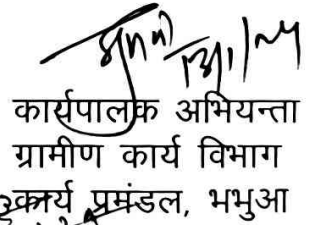 कार्यपालक अभियन्ता
ग्रामीण कार्य विभाग
कार्य प्रमंडल, भभुआ